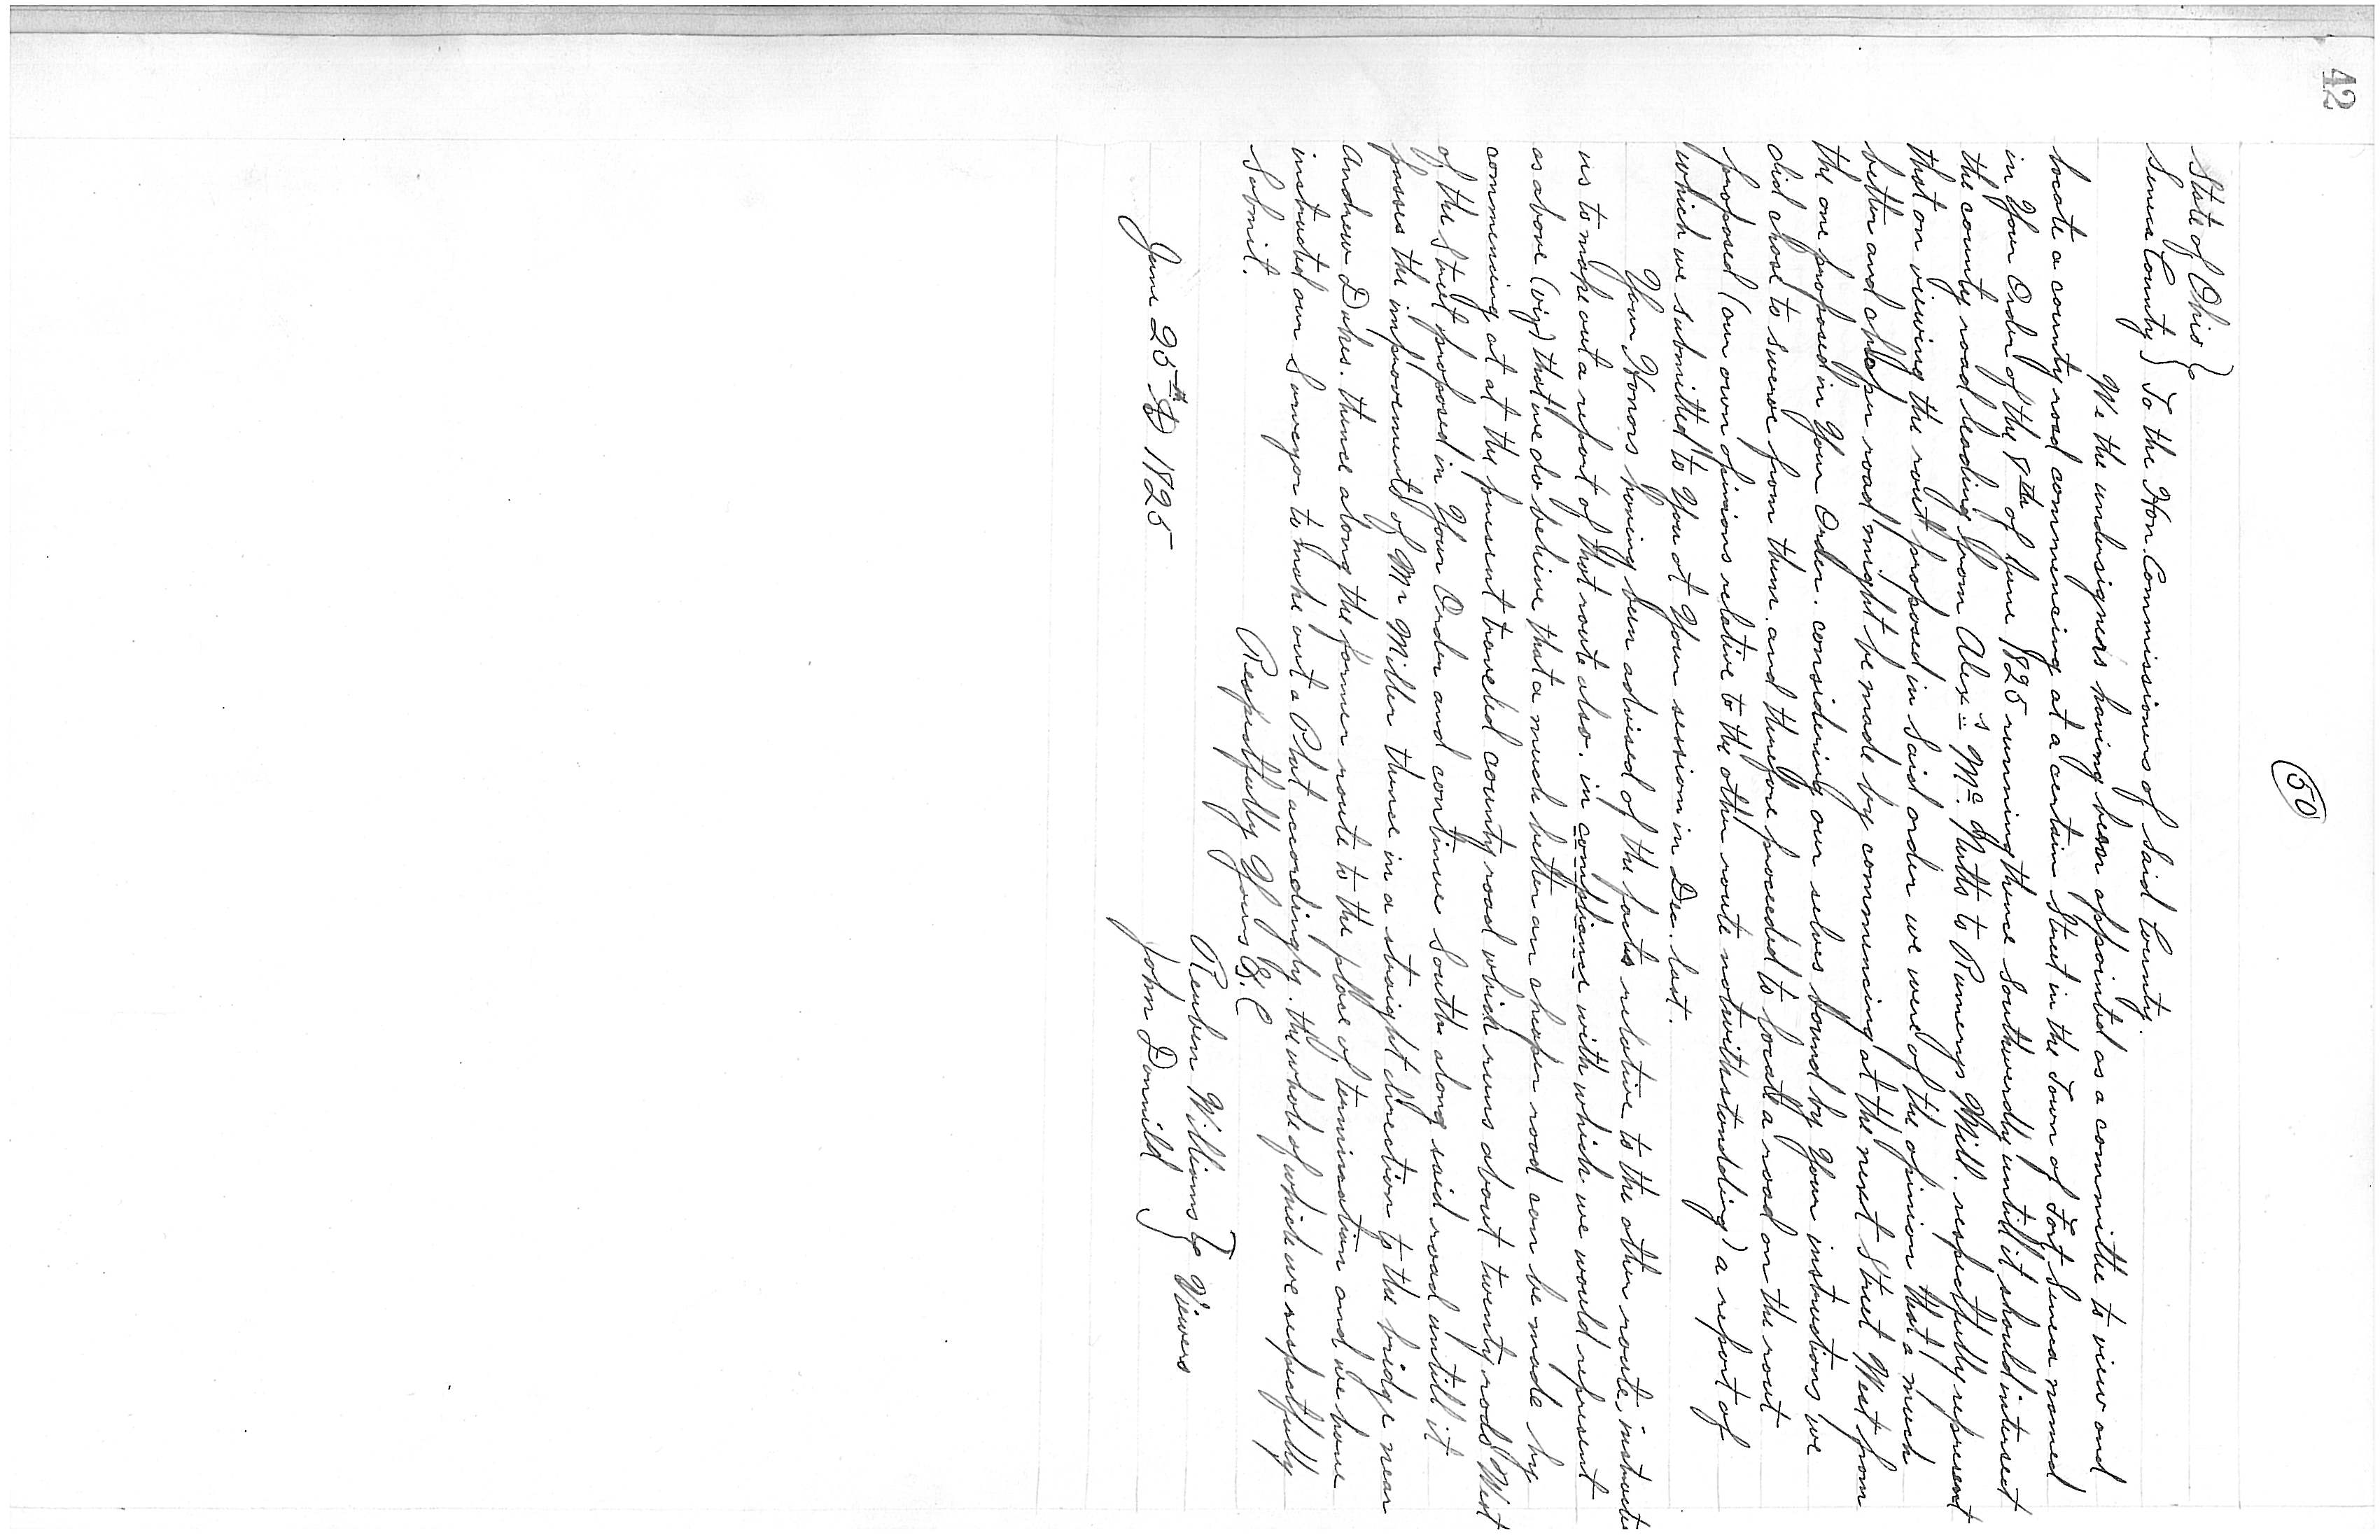 42
50
State of Ohio }
Seneca County } To the Hon. Commissioners of Said County.
We the undersigners having been appointed as a committe to view and
locate a county road commencing at a certain Street in the Town of Fort Seneca named
in Your Order of the 8th of June 1825 running thence Southwerdly untill it should intersect
the county road leading from Alexs Mc Nutts to Rumerys Mill. respectfully represent
that on viewing the rout proposed in Said order we were of the opinion that a much
better and cheaper road might be made by commencing at the next Street West from
the one proposed in Your Order. considering our selves bound by Your instructions we
did chose to swerve from them. and therefore proceeded to locate a road on the rout
proposed (our own opinions relative to the other route notwithstanding) a report of
which we submitted to You at Your session in Dec. last.
Your Honors having been advised of the facts relative to the other route, instructed
us to make out a report of that route also. in compliance with which we would represent
as above (viz) that we do believe that a much better an cheaper road can be made by
commencing at at the present traveled county road which runs about twenty rods West
of the Street proposed in Your Order and continue South along said road untill it
passes the improvements of Mr Miller thence in a straight direction to the bridge near
Andrew Dukes. thence along the former route to the place of termination and we have
instructed our Surveyor to make out a Plat accordingly. the whole of which we respectfully
Submit.
Respectfully Yours &.C
Reuben Williams }
June 25th AD 1825 John Donnild } Viewers